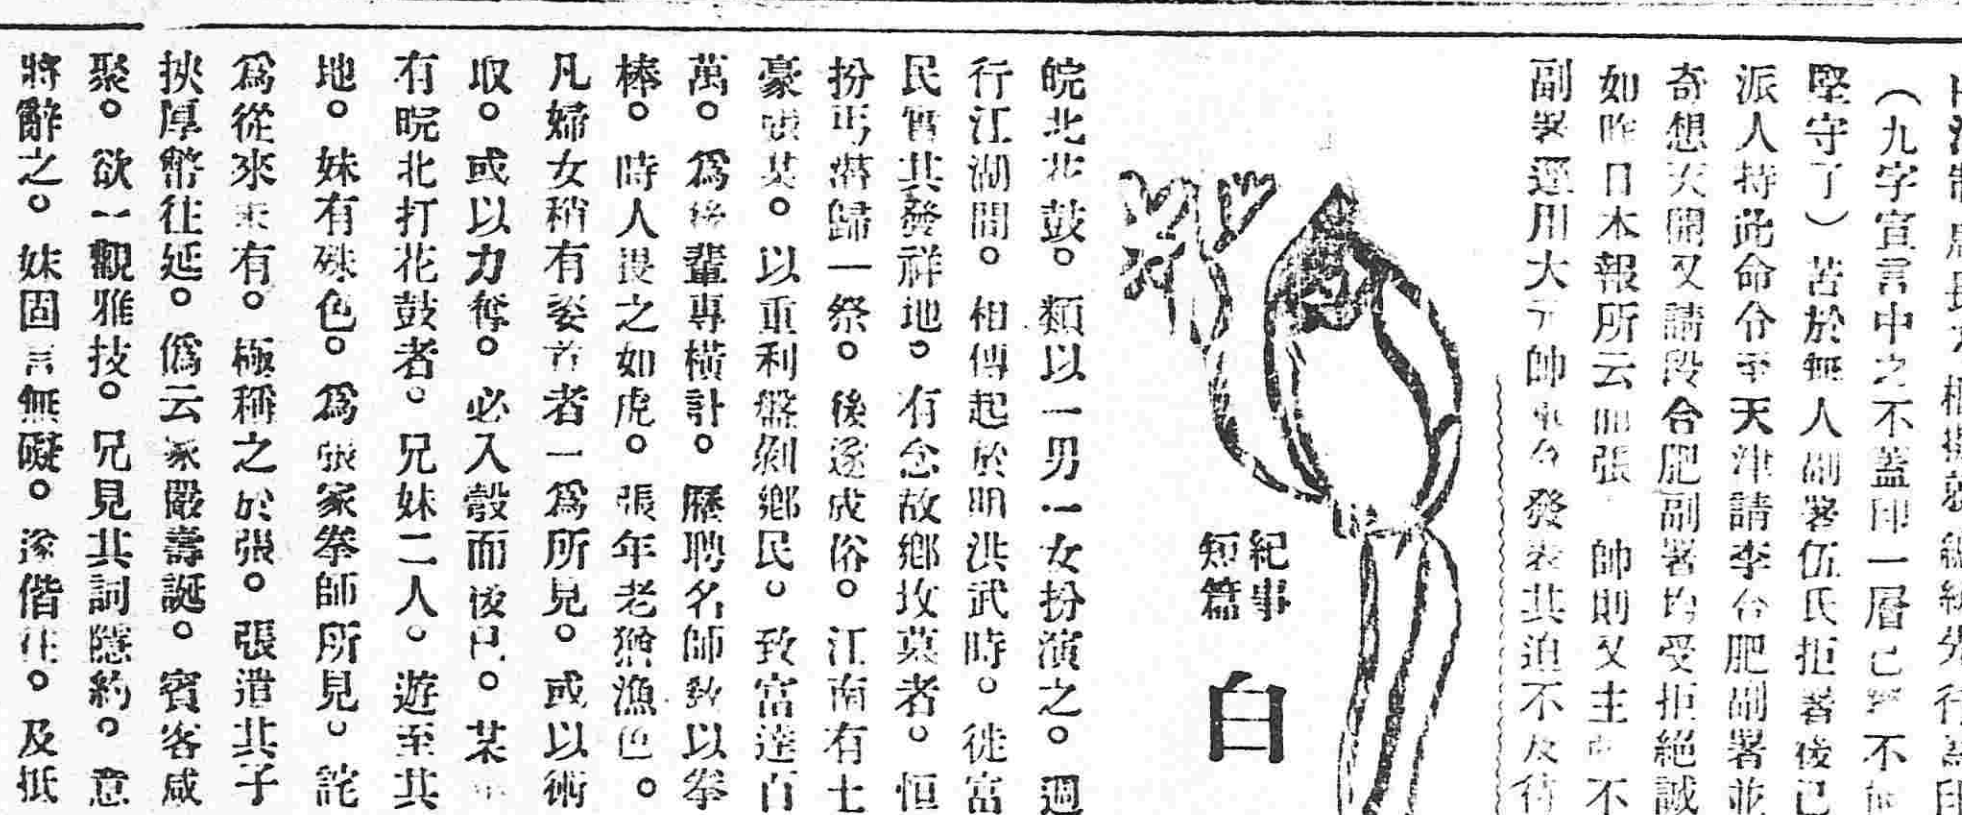 （九字宣言中之不蓋印一層已不
堅守了）苦於無人副署伍氏拒署後已
派人持此命令至天津請李合肥副署並
奇想天開又請段合肥副署均受拒絕誠
如昨日本報所云張帥則又主不
副署運用大元帥發表其迫不及待
紀事
短篇
白
皖北花鼓。類以一男一女扮演之。週
行江湖間。相傳起於明洪武時。徙富
民實其發祥地。有念故鄉坟墓者。恒
扮丐潛歸一祭。後遂成俗。江南有士
豪張某。以重利盤剝鄉民。致富達百
萬。為後輩專橫計。歷聘名師教以拳
棒。時人畏之如虎。張年老猶漁色。
凡婦女稍有姿首者一為所見。或以術
取。或以力奪。必入彀而後已。某
有皖北打花鼓者。兄妹二人。遊至其
地。妹有殊色。為張家拳師所見。詫
為從來未有。極稱之於張。張遣其子
挾厚幣往延。偽云家嚴壽誕。賓客咸
聚。欲一觀雅技。兄見其詞隱約。意
將辭之。妹固言無礙。遂偕往。及抵